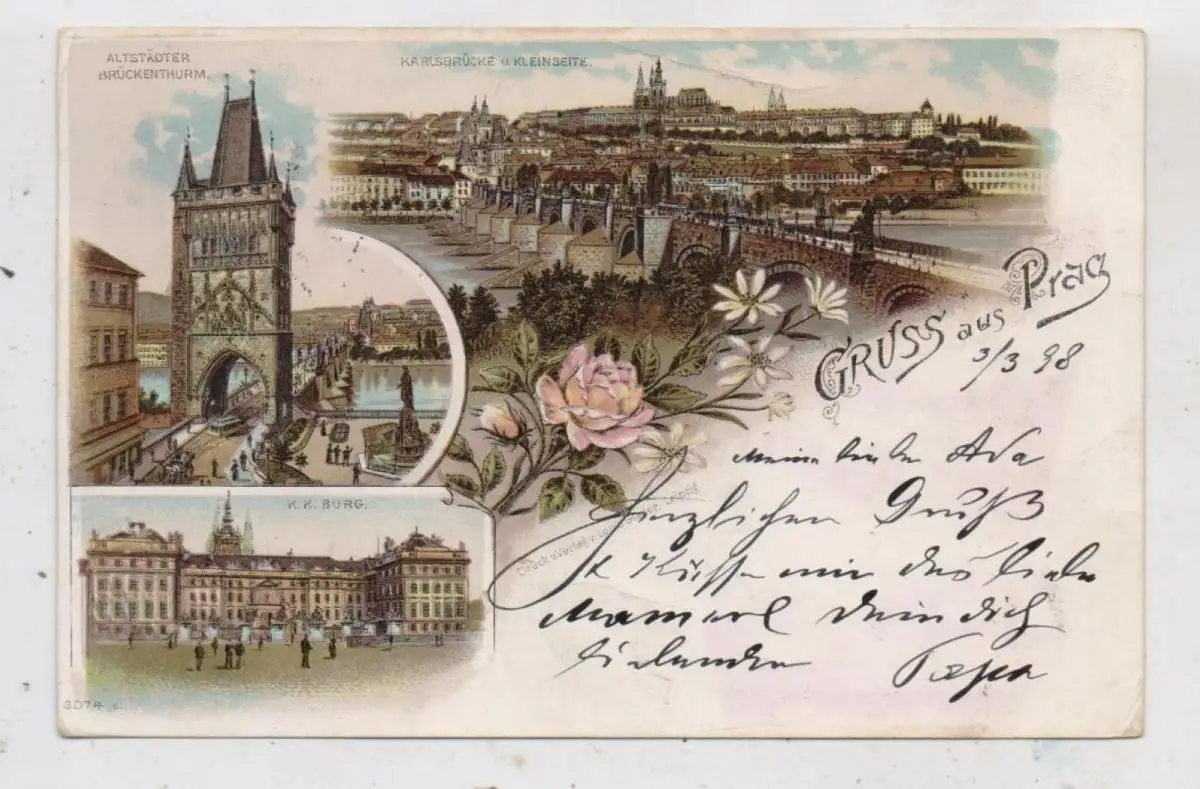 ALTSTÄDTER
BRÜCKENTHURM.
KARLSBRÜCKE U. KLEINSEITE.
GRUSS aus Prag
3/3 98
Meine liebe Ada
Herzlichen Gruß
u. Küsse mir das liebe
Mamerl dein dich
liebender Papa
K. K. BURG.
Druck u. Verlag v.
3074